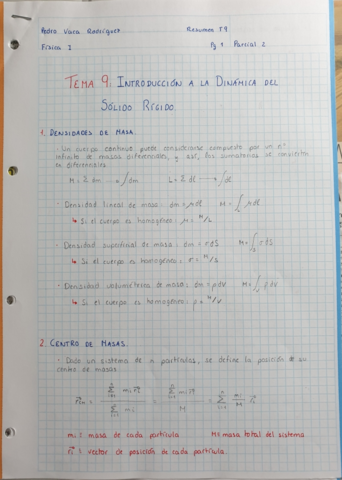 Pedro Vaca Rodríguez Resumen T9
Física I Pg 1 Parcial 2
TEMA 9: INTRODUCCIÓN A LA DINÁMICA DEL
SÓLIDO RÍGIDO.
1. DENSIDADES DE MASA.
· Un cuerpo continuo puede considerarse compuesto por un nº
infinito de masas diferenciales, y así, los sumatorios se convierten
en diferenciales.
M = Σ dm → ∫dm L = Σ dl → ∫dl
· Densidad lineal de masa: dm = μdl M = ∫ μdl
↳ Si el cuerpo es homogéneo: μ = M/L
· Densidad superficial de masa: dm = σdS M = ∫ σdS
↳ Si el cuerpo es homogéneo: σ = M/S
· Densidad volumétrica de masa: dm = ρdV M = ∫ ρdV
↳ Si el cuerpo es homogéneo: ρ = M/V
2. CENTRO DE MASAS.
· Dado un sistema de n partículas, se define la posición de su
centro de masas
r⃗cm = Σ mi r⃗i / Σ mi = Σ mi r⃗i / M = Σ mi/M r⃗i
mi = masa de cada partícula M = masa total del sistema
r⃗i = vector de posición de cada partícula.